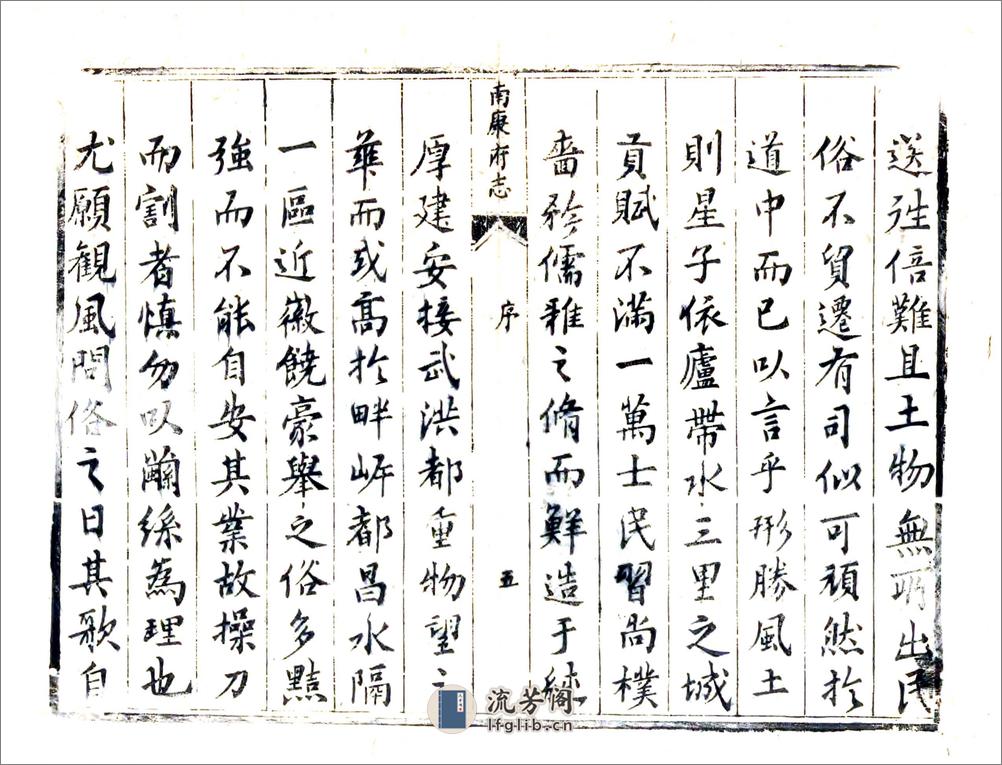 送迬倍難且土物無所出民
俗不貿遷有司似可頑然於
道中而已以言乎形勝風土
則星子依廬帶水三里之城
貢賦不滿一萬士民習尚樸
嗇矜儒雅之脩而鮮造于
南康府志
序
五
厚建安接武洪都重物望之
華而或高於畔岸都昌水隔
一區近徽饒豪舉之俗多黠
強而不能自安其業故操刀
而割者慎勿以繭絲為理也
尤願觀風問俗之日其歌自
流芳阁
lfglib.cn